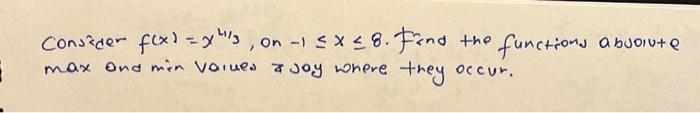 Consider f(x) = x^4/3, on -1 ≤ x ≤ 8. Find the functions absolute
max and min values & say where they occur.